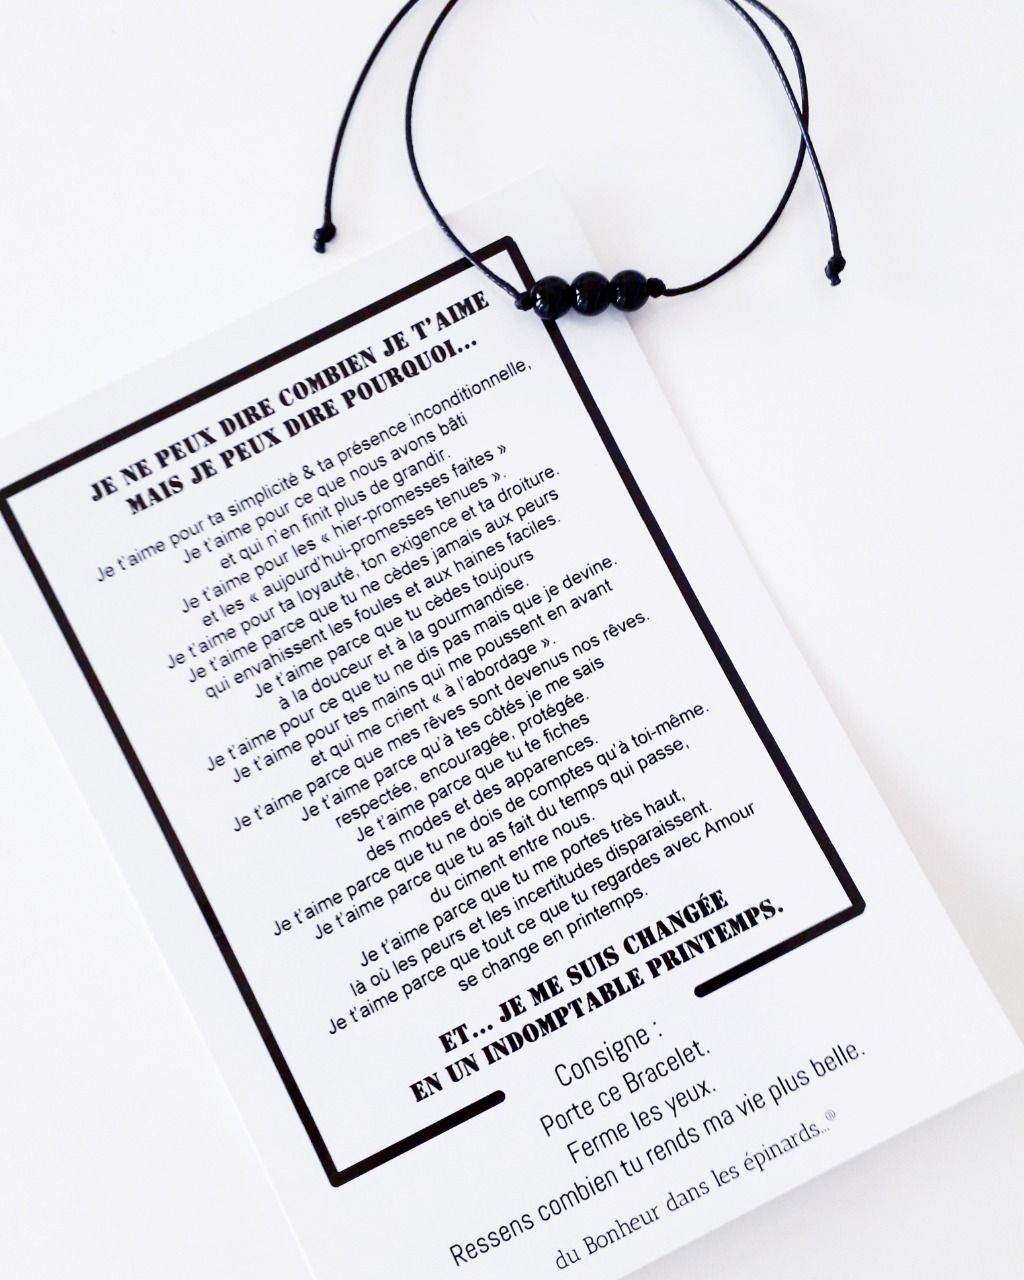 JE NE PEUX DIRE COMBIEN JE T'AIME
MAIS JE PEUX DIRE POURQUOI...
Je t'aime pour ta simplicité & ta présence inconditionnelle,
Je t'aime pour ce que nous avons bâti
et qui n'en finit plus de grandir.
Je t'aime pour les « hier-promesses faites »
et les « aujourd'hui-promesses tenues ».
Je t'aime pour ta loyauté, ton exigence et ta droiture.
Je t'aime parce que tu ne cèdes jamais aux peurs
qui envahissent les foules et aux haines faciles.
Je t'aime parce que tu cèdes toujours
à la douceur et à la gourmandise.
Je t'aime pour ce que tu ne dis pas mais que je devine.
Je t'aime pour tes mains qui me poussent en avant
et qui me crient « à l'abordage ».
Je t'aime parce que mes rêves sont devenus nos rêves.
Je t'aime parce qu'à tes côtés je me sais
respectée, encouragée, protégée.
Je t'aime parce que tu te fiches
des modes et des apparences.
Je t'aime parce que tu ne dois de comptes qu'à toi-même.
Je t'aime parce que tu as fait du temps qui passe,
du ciment entre nous.
Je t'aime parce que tu me portes très haut,
là où les peurs et les incertitudes disparaissent.
Je t'aime parce que tout ce que tu regardes avec Amour
se change en printemps.
ET... JE ME SUIS CHANGÉE
EN UN INDOMPTABLE PRINTEMPS.
Consigne :
Porte ce Bracelet.
Ferme les yeux.
Ressens combien tu rends ma vie plus belle.
du Bonheur dans les épinards...®